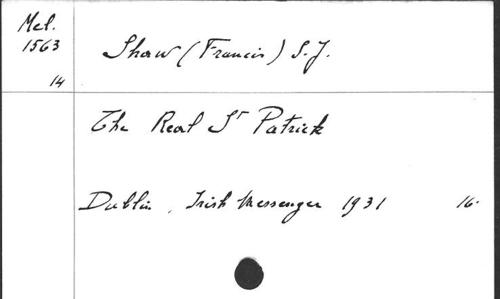 Mel.
1563
14
Shaw (Francis) S.J.
The Real Sr Patrick
Dublin, Irish Messenger 1931 16.